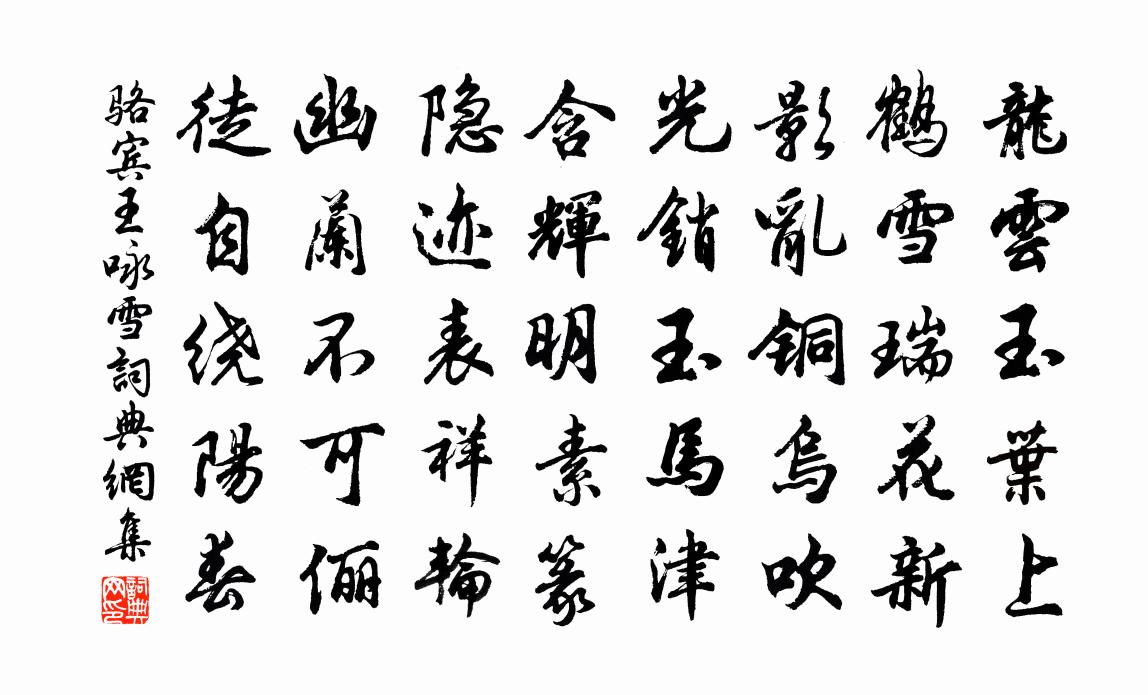 龍雲玉葉上
鶴雪瑞花新
影亂铜烏吹
光銷玉馬津
含輝明素篆
隐迹表祥輪
幽蘭不可儷
徒自绕陽春
骆宾王咏雪詞典網集
詞典网印